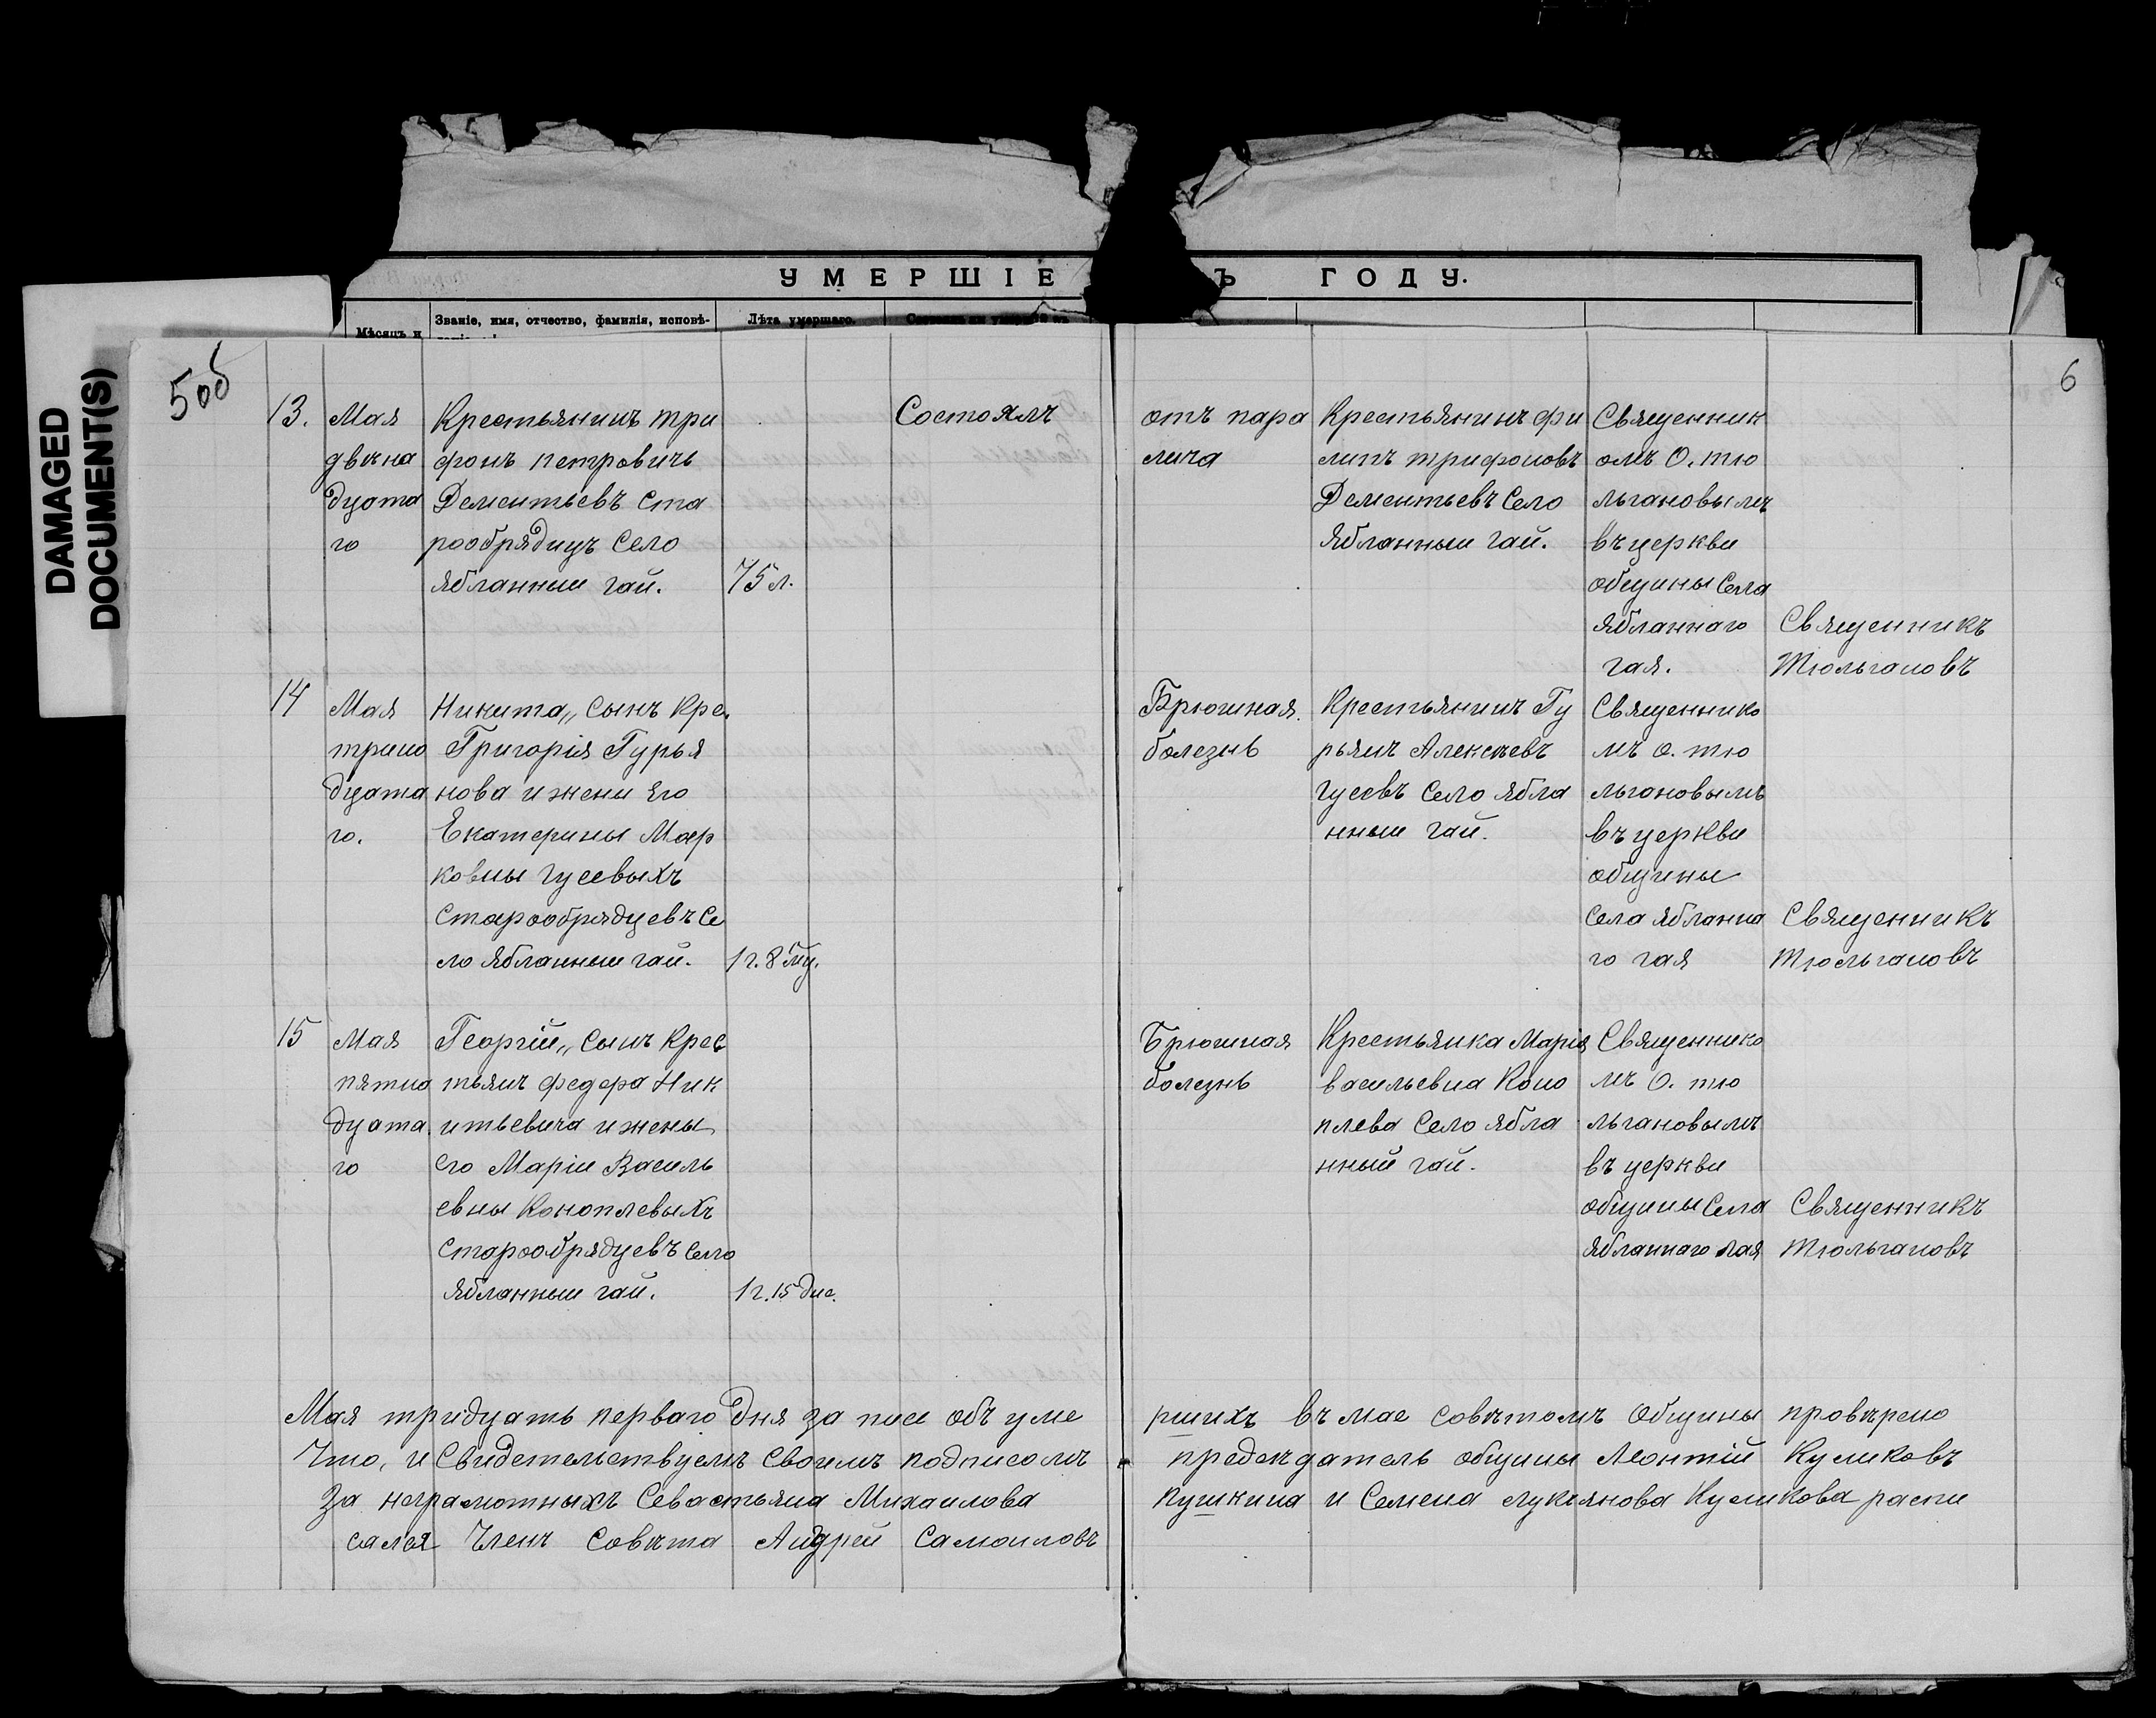 DAMAGED
DOCUMENT(S)
УМЕРШІЕ
Ъ ГОДУ.
Мѣсяцъ и
Званіе, имя, отчество, фамилія, исповѣ-
Лѣта умершаго.
5об
6
13.
Мая
двѣна
дцата
го
Крестьянинъ три
фонъ петровичъ
Дементьевъ Ста
рообрядцъ Село
Ябланныи гай.
75 л.
Состоялъ
отъ пара
лича
Крестьянинъ фи
липъ трифоновъ
Дементьевъ Село
Ябланныи гай.
Священник
омъ О. тю
льгановымъ
въ церкви
общины Села
Ябланнаго
гая.
Священникъ
Тюльгановъ
14
Мая
трина
дцата
го.
Никита„ Сынъ Кре.
Григорія Гурья
нова и жены Его
Екатерины Мар
ковны Гусевыхъ
Старообрядцевъ Се
ло Ябланныи гай.
1 г. 8 мц.
Брюшная
болезнь
Крестьянинъ Гу
рьянъ Алексѣевъ
Гусевъ Село Ябла
нныи гай.
Священнико
мъ о. тю
льгановымъ
въ церкви
общины
Села Ябланна
го гая
Священникъ
Тюльгановъ
15
Мая
пятна
дцата
го
Георгій„ Сынъ Крес
тьянъ федора Ник
итьевича и жены
его Маріи Василь
евны Коноплевыхъ
Старообрядцевъ Село
Ябланныи гай.
1 г. 15 дне.
Брюшная
болезнь
Крестьянка Марія
васильевна Коно
плева Село Ябла
нный гай.
Священнико
мъ О. тю
льгановымъ
въ церкви
общины Села
Ябланнаго гая
Священникъ
Тюльгановъ
Мая тридцать перваго Дня за писи объ уме
ршихъ въ мае совѣтомъ Общины провѣрено
Что, и Свидетельствуемъ Своимъ подписомъ
предсѣдатель общины Леонтій Куликовъ
За неграмотныхъ Севастьяна Михаилова
Кушнина и Семена лукьянова Куликова распи
сался Членъ Совѣта Андрей Самоиловъ